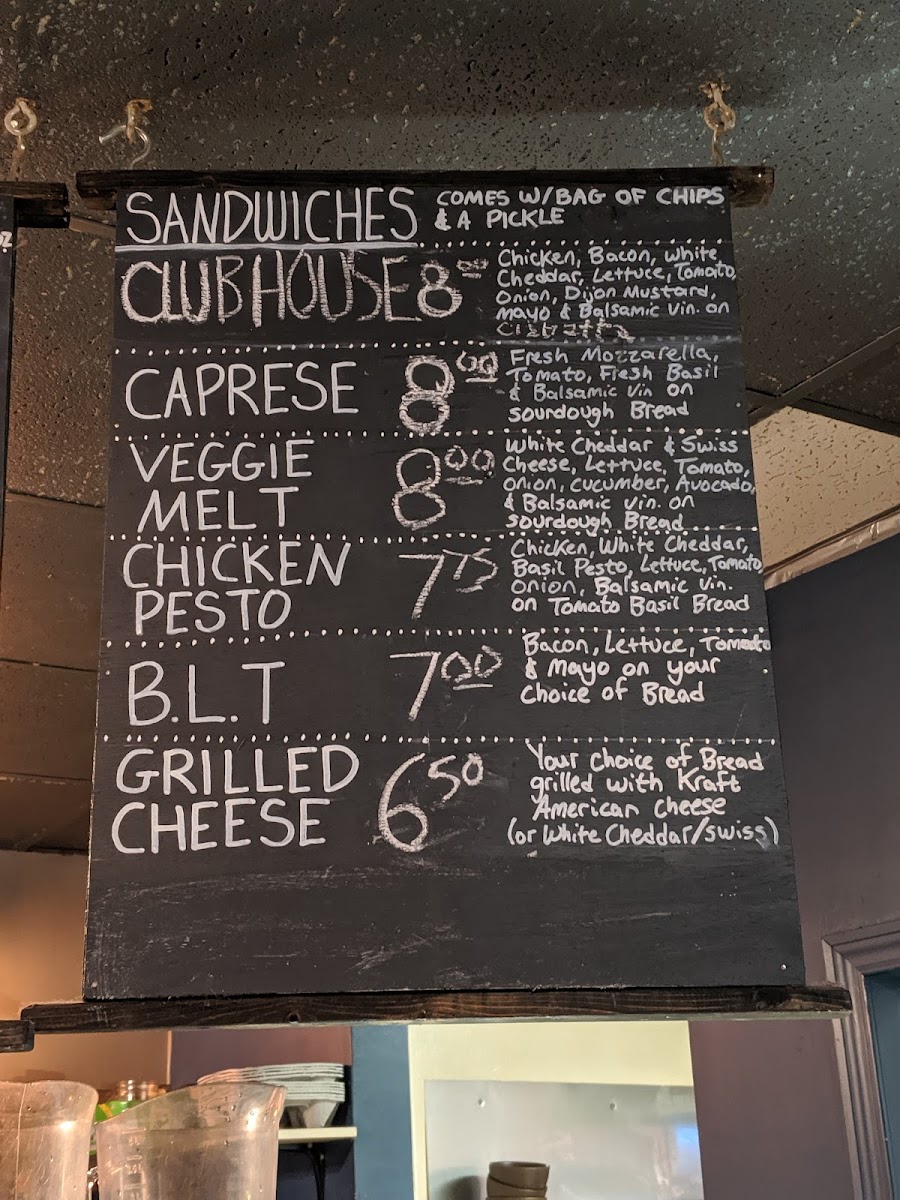 SANDWICHES COMES W/BAG OF CHIPS
& A PICKLE
CLUBHOUSE 8⁰⁰
Chicken, Bacon, White
Cheddar, Lettuce, Tomato,
Onion, Dijon Mustard,
Mayo & Balsamic Vin. on
Ciabatta
CAPRESE 8⁰⁰
Fresh Mozzarella,
Tomato, Fresh Basil
& Balsamic Vin on
sourdough Bread
VEGGIE
MELT 8⁰⁰
White Cheddar & Swiss
Cheese, Lettuce, Tomato,
Onion, cucumber, Avocado,
& Balsamic Vin. on
sourdough Bread
CHICKEN
PESTO 7⁷⁵
Chicken, White Cheddar,
Basil Pesto, Lettuce, Tomato
Onion, Balsamic Vin.
on Tomato Basil Bread
B.L.T 7⁰⁰
Bacon, Lettuce, Tomato
& Mayo on your
Choice of Bread
GRILLED
CHEESE 6⁵⁰
Your choice of Bread
grilled with Kraft
American cheese
(or White Cheddar/swiss)